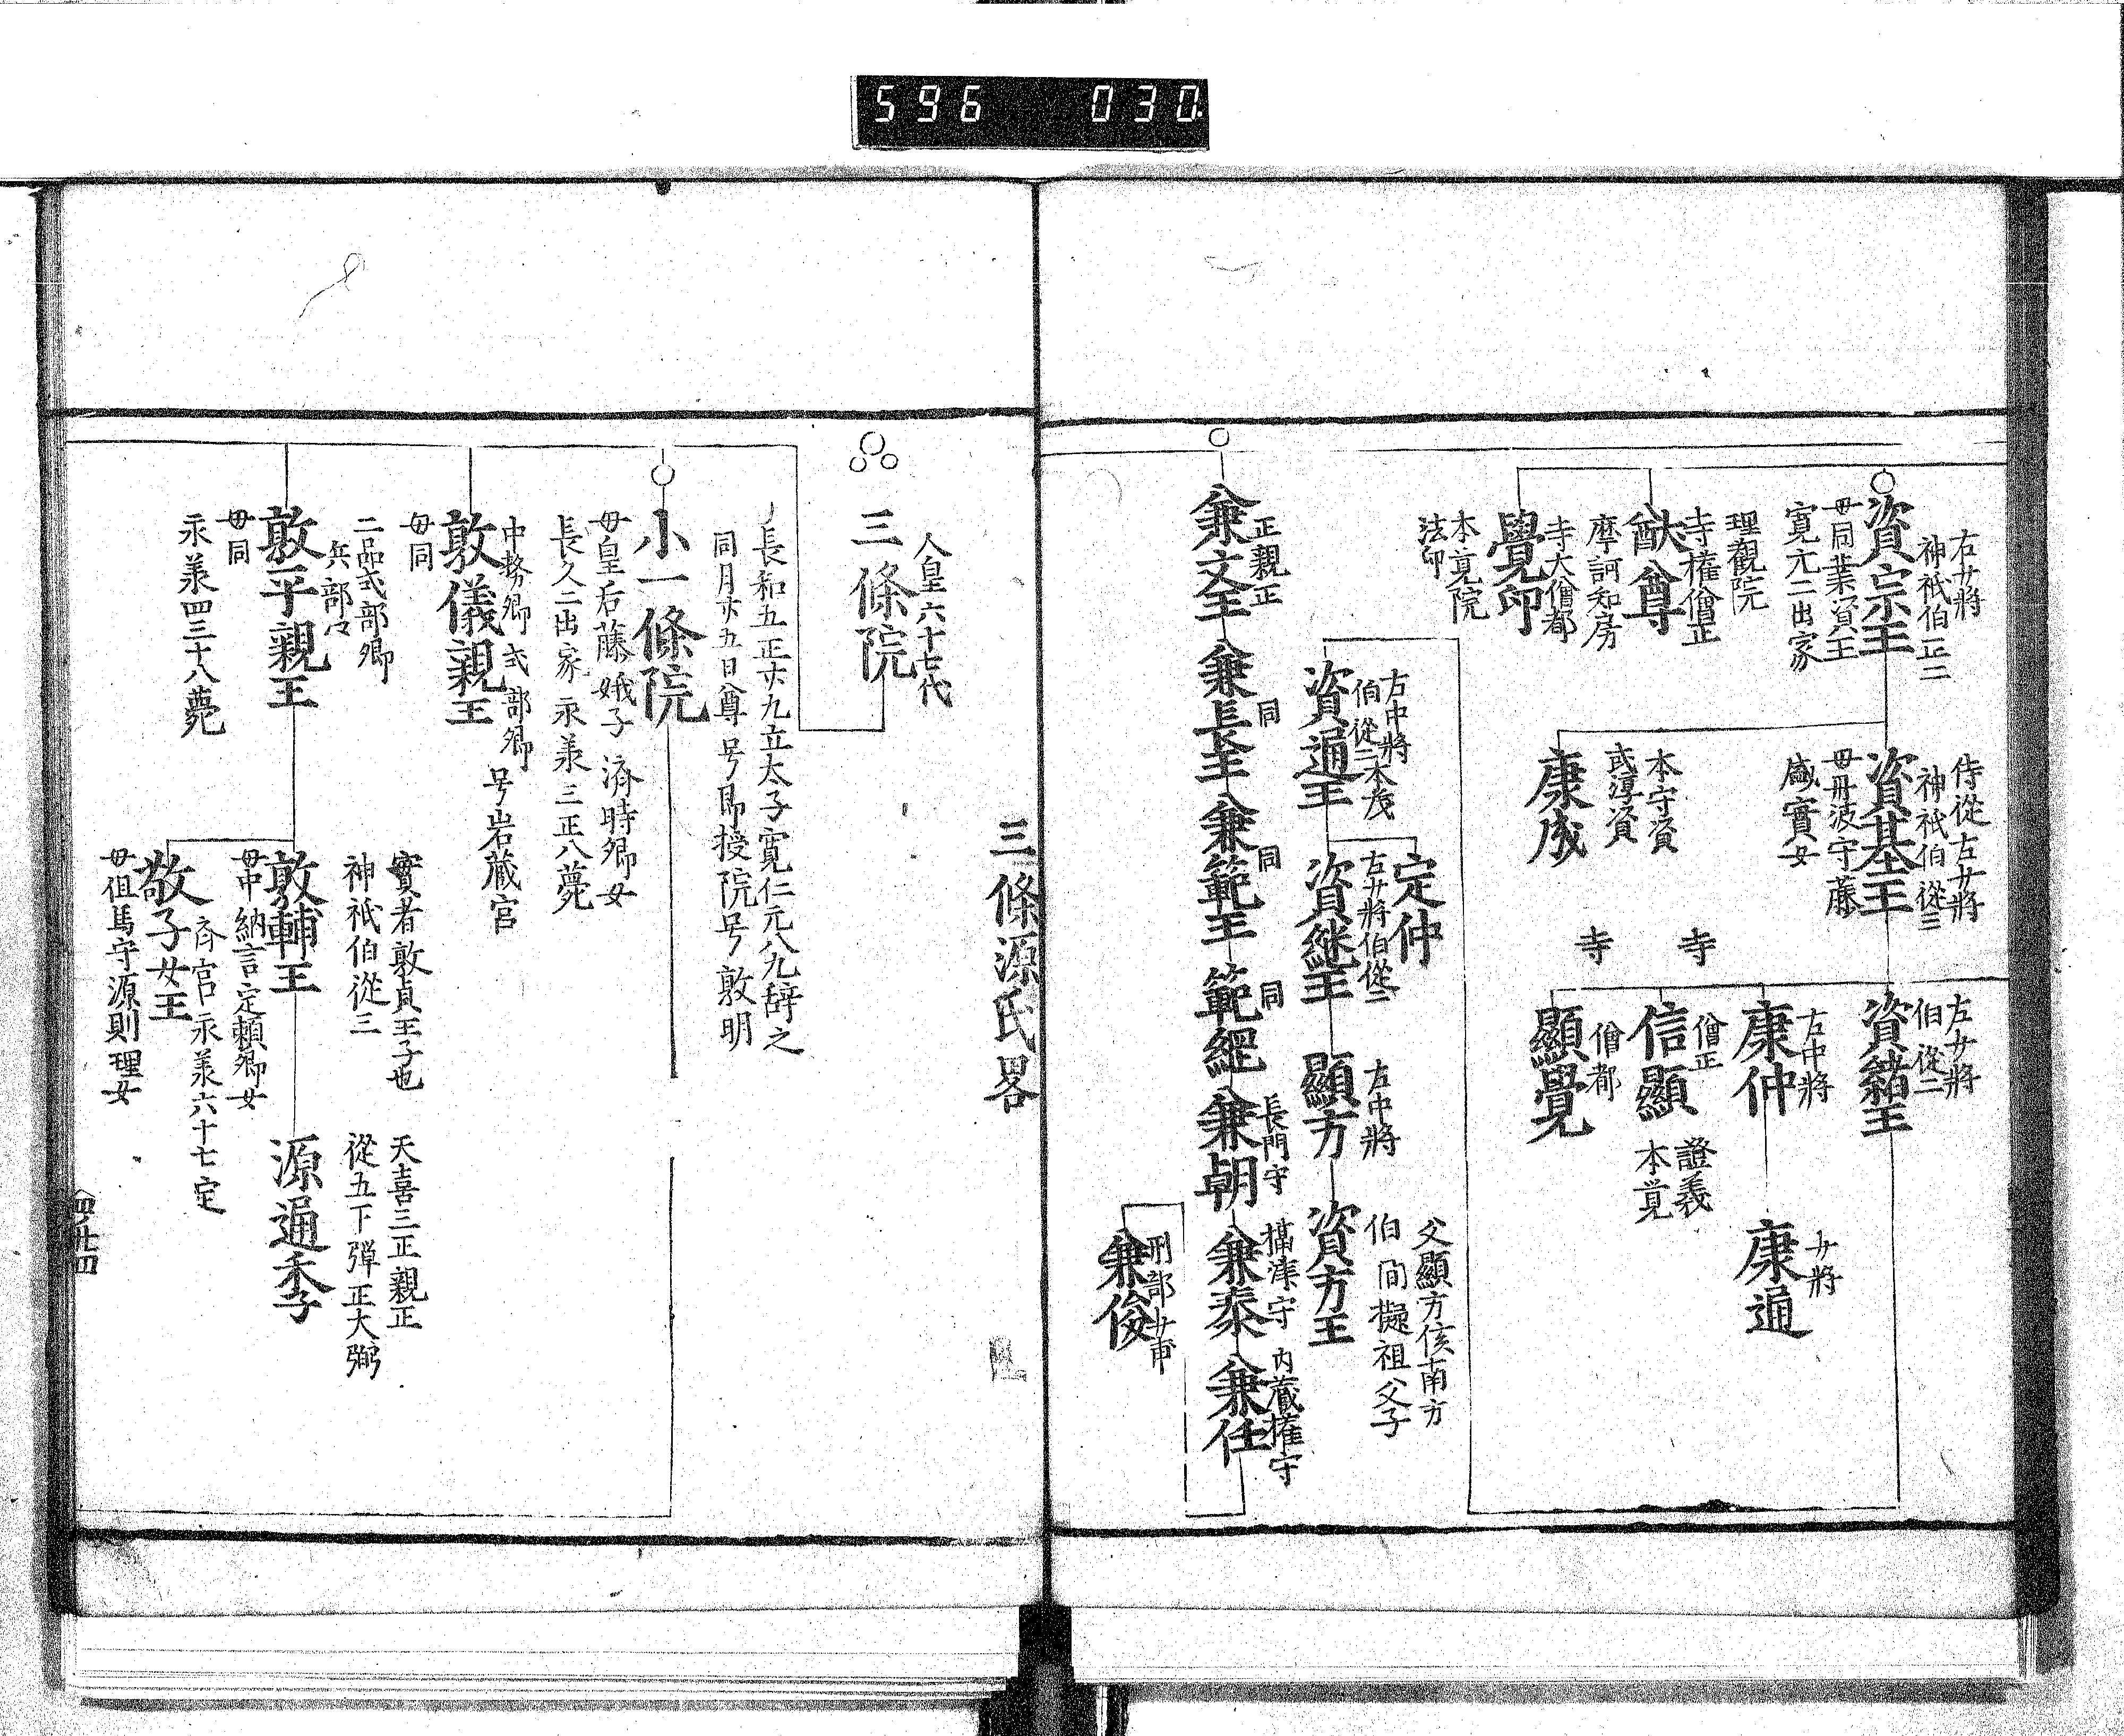 596 030
資宗王
右少将
神祇伯正二
母同業資王
寛元二出家
猷尊
理観院
寺権僧正
摩訶知房
覺印
寺大僧都
本覚院
法印
資基王
侍従左少将
神祇伯従三
母丹波守藤
盛實女
康成
本守資
或淳資
資緒王
左少将
伯従二
康仲
左中将
康通
少将
信顯
寺
僧正
證義
本覚
顯覺
寺
僧都
資通王
右中将
伯従二本茂
定仲
資継王
右少将伯従二
顯方
左中将
資方王
父顯方候南方
伯間擬祖父子
兼文王
正親正
兼長王
同
兼範王
同
範經
同
兼朝
長門守
兼泰
攝津守
兼任
内蔵権守
兼俊
刑部少甫
三條源氏畧
三條院
人皇六十七代
小一條院
長和五正廿九立太子寛仁元八九辞之
同月廿五日尊号即授院号敦明
母皇后藤娍子済時卿女
長久二出家永羕三正八薨
敦儀親王
中務卿式部卿号岩蔵宮
母同
敦平親王
二品式部卿
兵部々
母同
永羕四三十八薨
敦輔王
實者敦貞王子也
神祇伯従三
母中納言定頼卿女
源通季
天喜三正親正
従五下弾正大弼
敬子女王
斉宮永羕六十七定
母但馬守源則理女
四ノ廿四